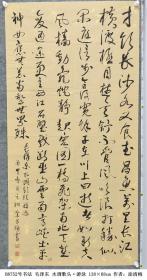 才饮长沙水又食武昌鱼万里长江
横渡极目楚天舒不管风吹浪打胜似
闲庭信步今日得宽馀子在川上曰逝者如斯夫
风樯动龟蛇静起宏图一桥飞架南北天堑
变通途更立西江石壁截断巫山云雨高峡出平湖
神女应无恙当惊世界殊
号书法 毛泽东 水调歌头·游泳 作者：